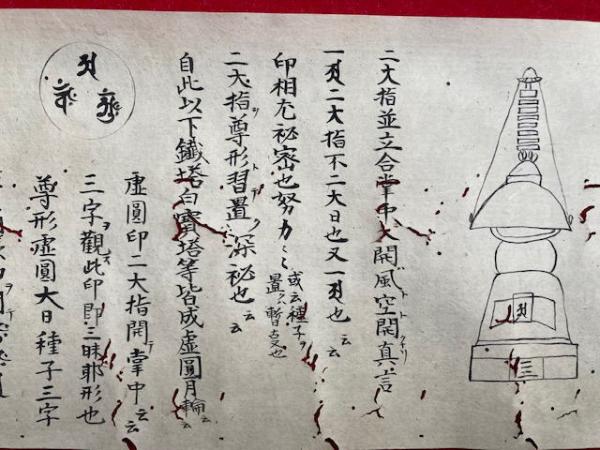 二大指並立合掌中大開風空開真言
一二大指不二大日也又一也云云
印相尤祕密也努力〻〻
或云種子ヲ
置ハ暫也
二大指尊形習置深祕也云云
自此以下鐵塔白寳塔等皆成虚圓月輪云云
虚圓印二大指開掌中云云
三字觀此印即三昧耶形也
尊形虚圓大日種子三字